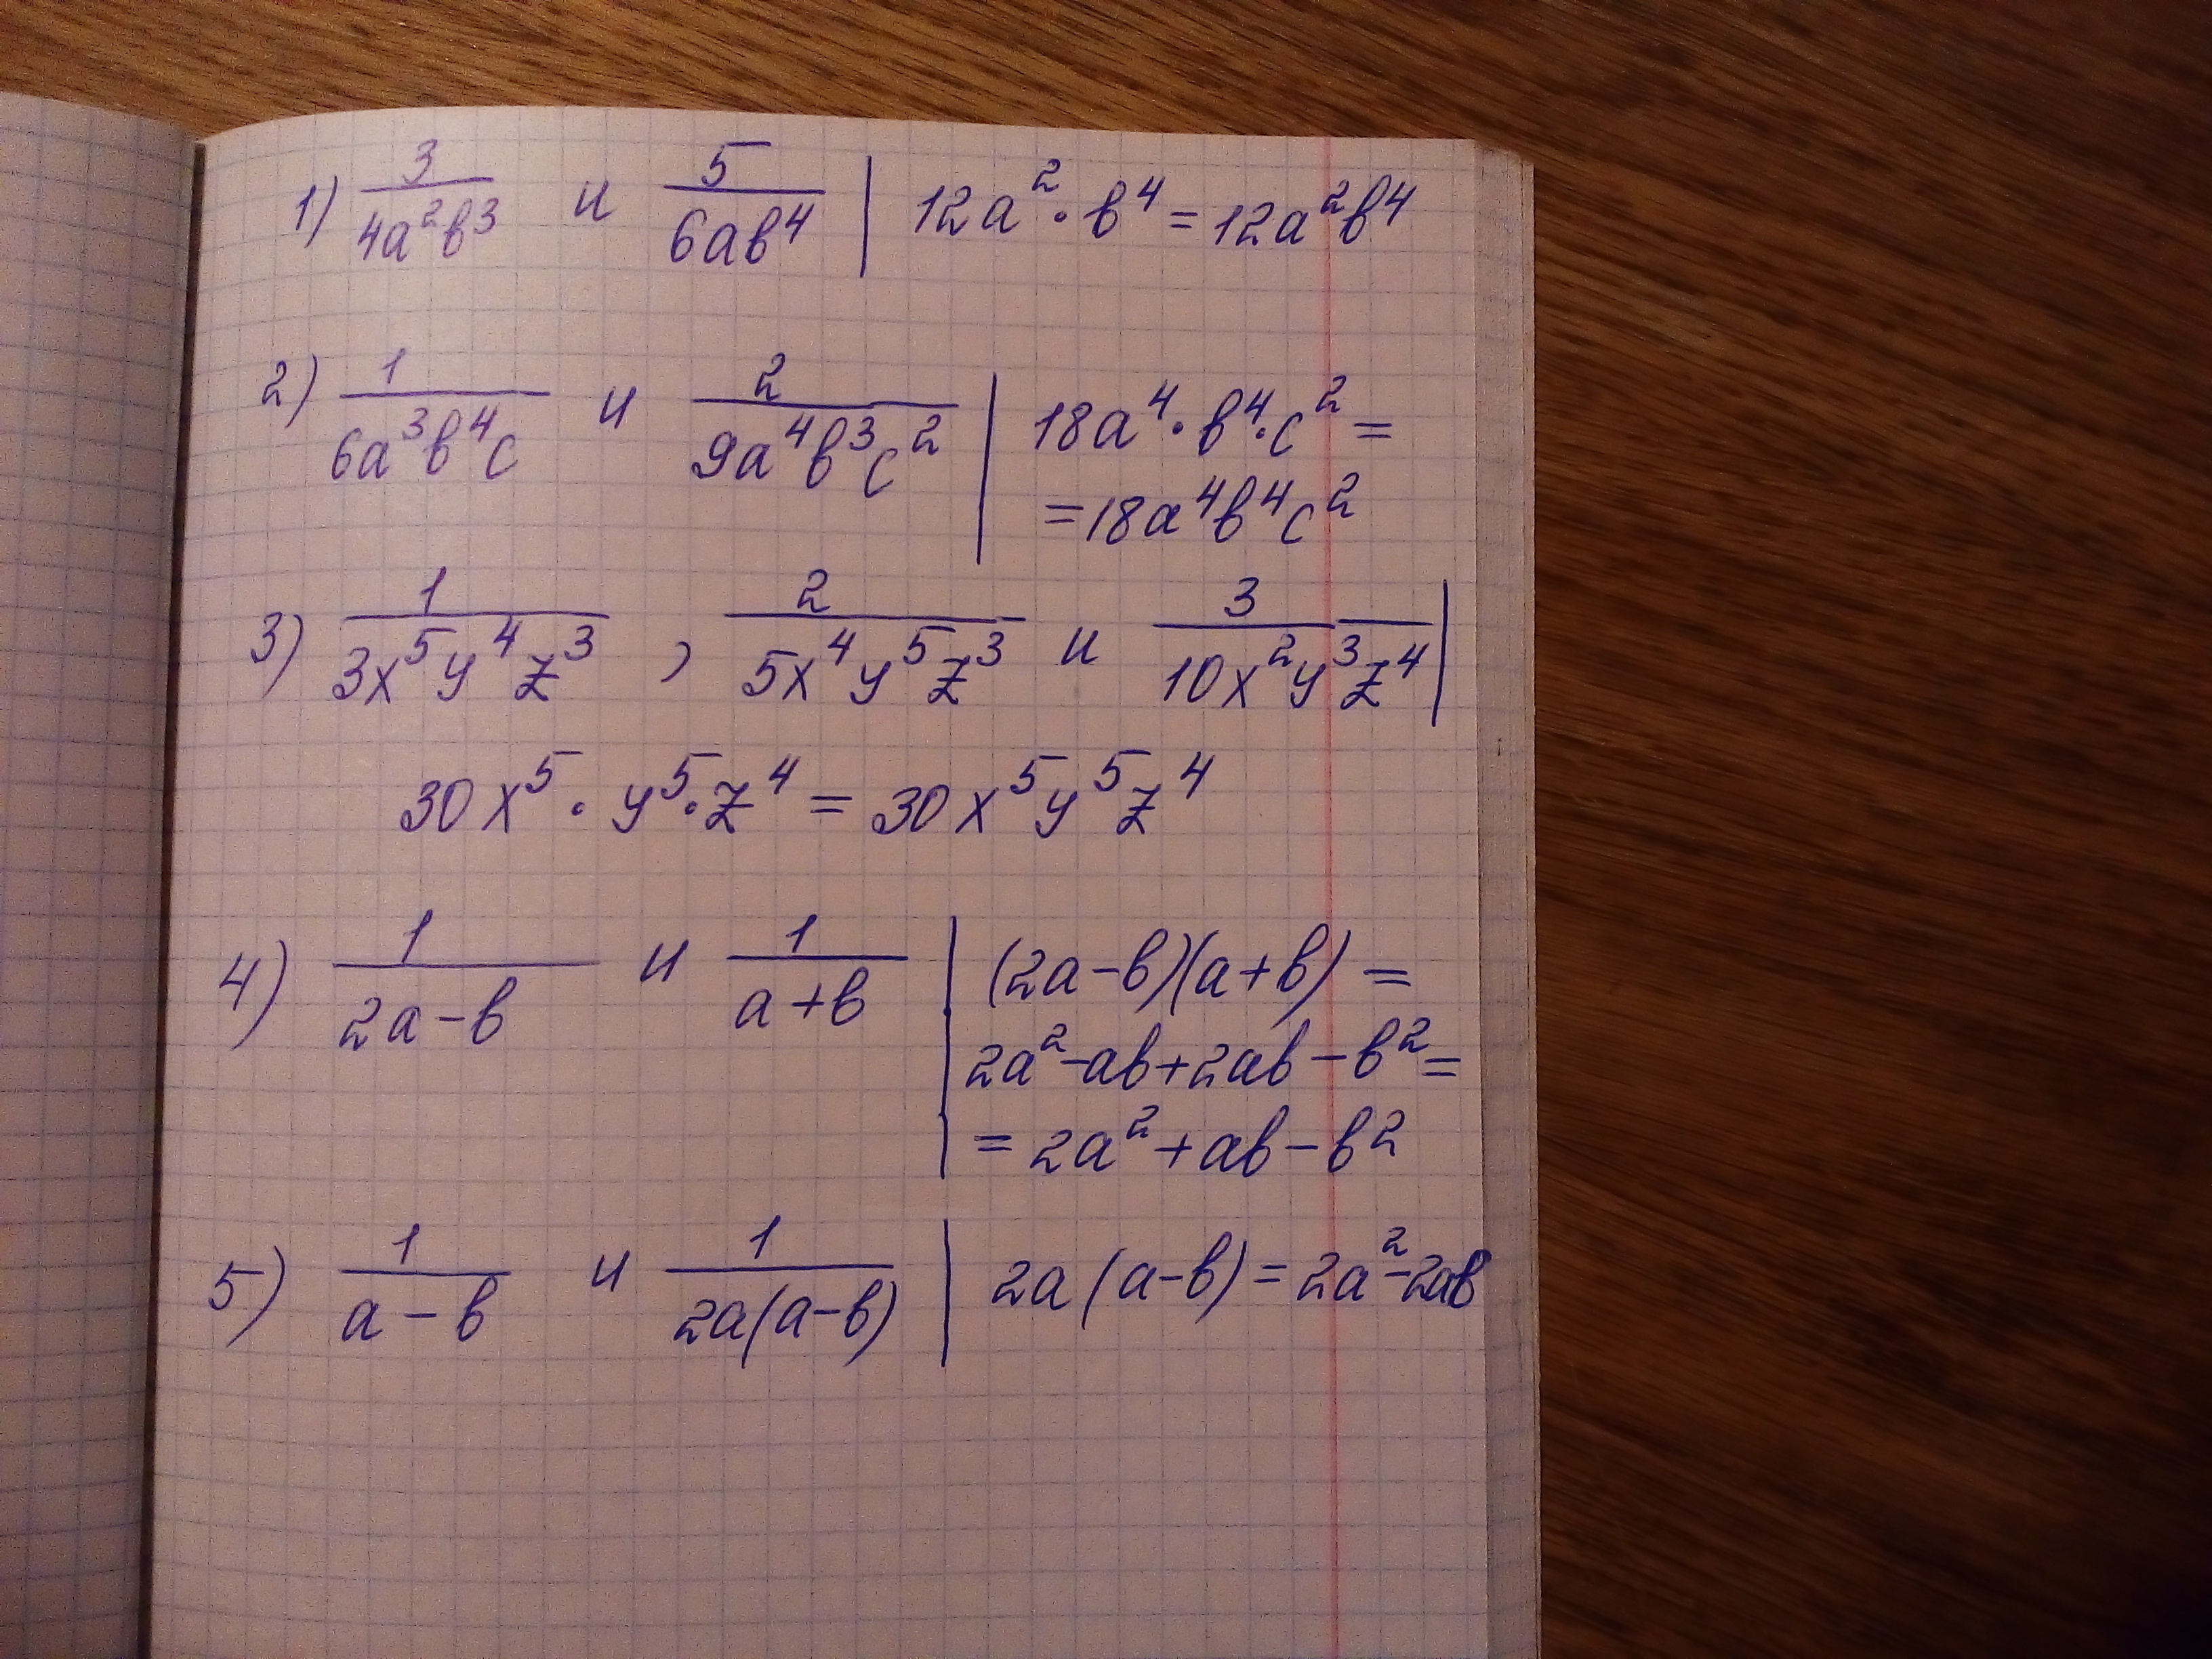 1) 3/(4a²b³) и 5/(6ab⁴) | 12a²·b⁴ = 12a²b⁴
2) 1/(6a³b⁴c) и 2/(9a⁴b³c²) | 18a⁴·b⁴·c² =
= 18a⁴b⁴c²
3) 1/(3x⁵y⁴z³) , 2/(5x⁴y⁵z³) и 3/(10x²y³z⁴) |
30x⁵·y⁵·z⁴ = 30x⁵y⁵z⁴
4) 1/(2a-b) и 1/(a+b) | (2a-b)(a+b) =
2a²-ab+2ab-b² =
= 2a²+ab-b²
5) 1/(a-b) и 1/(2a(a-b)) | 2a(a-b) = 2a²-2ab